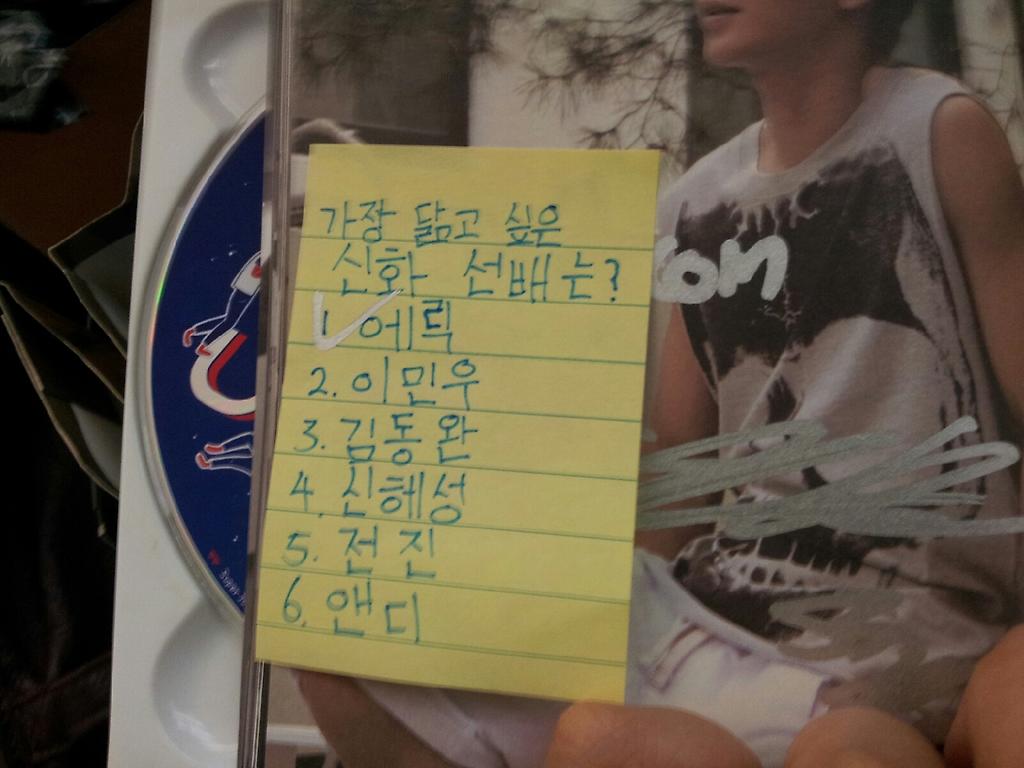 가장 닮고 싶은
신화 선배는?
1. 에릭
2. 이민우
3. 김동완
4. 신혜성
5. 전진
6. 앤디